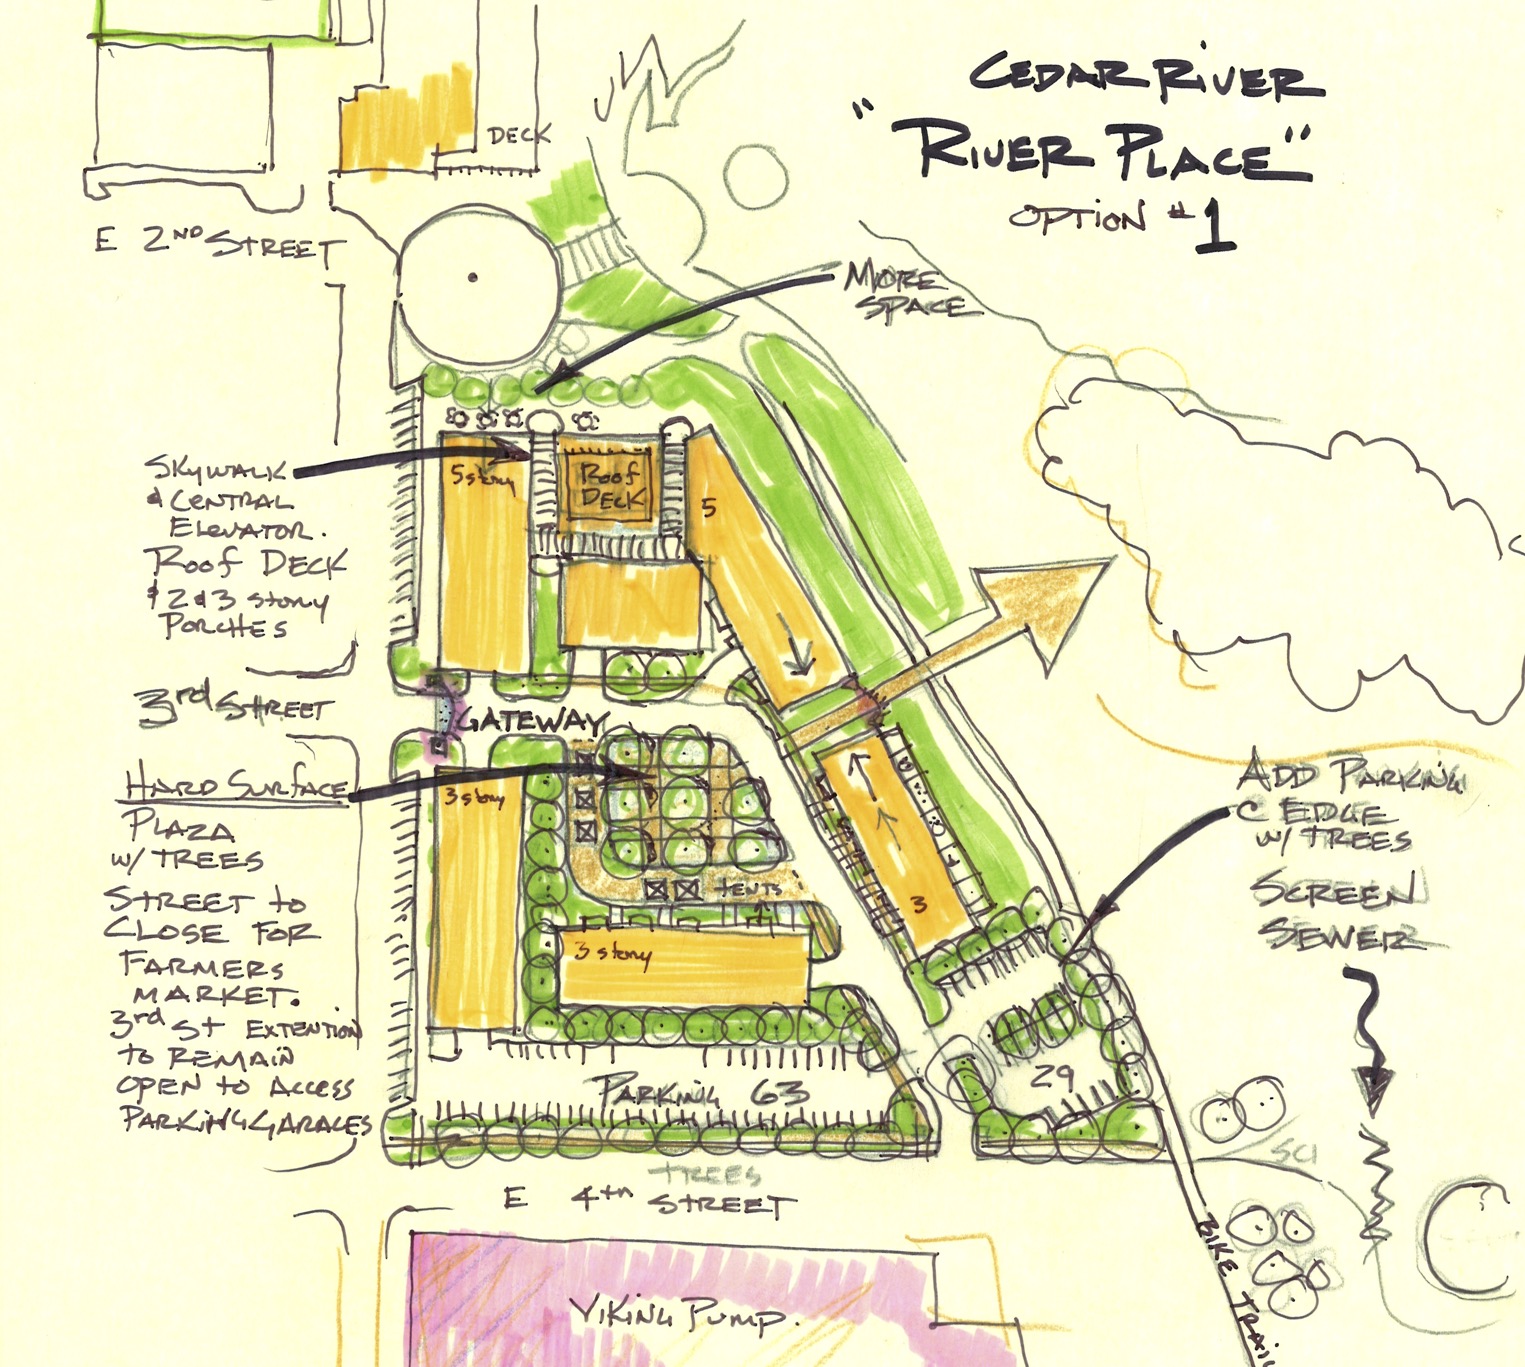 CEDAR RIVER
"RIVER PLACE"
OPTION #1
DECK
E 2ND STREET
MORE
SPACE
SKYWALK
& CENTRAL
ELEVATOR.
ROOF DECK
& 2 & 3 STORY
PORCHES
5 story
Roof
DECK
5
3rd STREET
GATEWAY
HARD SURFACE
PLAZA
W/ TREES
STREET to
CLOSE FOR
FARMERS
MARKET.
3rd St EXTENTION
to REMAIN
OPEN to ACCESS
PARKING GARAGES
3 story
tents
3 story
3
ADD PARKING
@ EDGE
W/ TREES
SCREEN
SEWER
PARKING 63
29
TREES
E 4th STREET
BIKE TRAIL
VIKING PUMP.